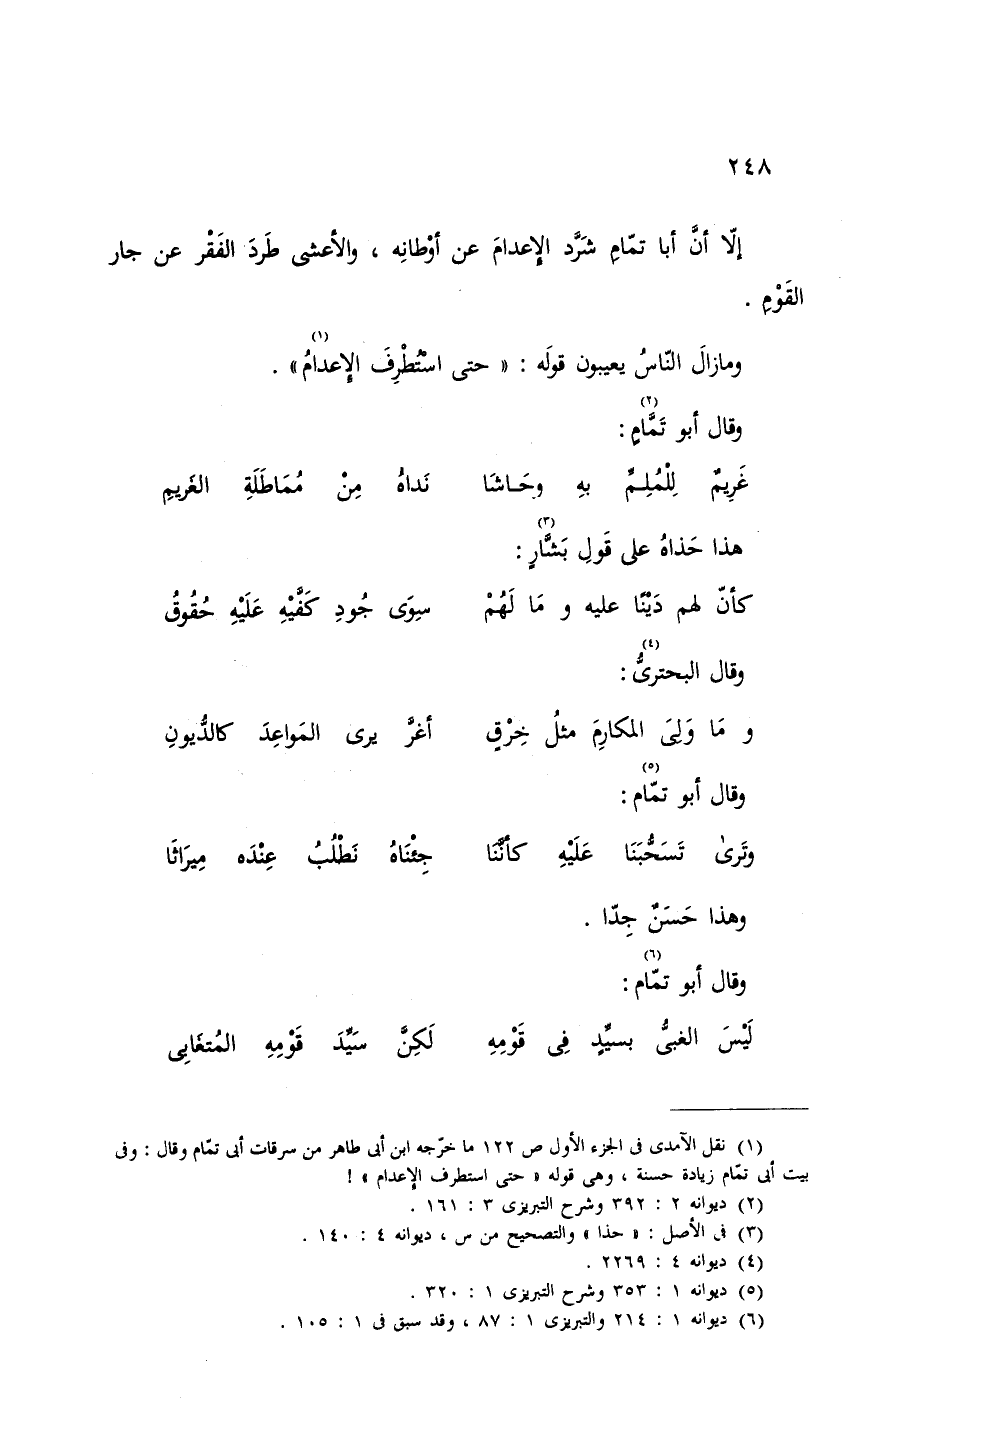 ٢٤٨
إلّا أنَّ أبا تمّامٍ شَرَّد الإعدامَ عن أوْطانِه ، والأعشى طَردَ الفَقْر عن جار
القَوْمِ .
ومازالَ النّاسُ يعيبون قولَه : « حتى اسْتُطْرِفَ الإعدامُ(١)» .
وقال أبو تَمَّامٍ(٢):
غَرِيمٌ لِلْمُلِـمِّ بهِ وحَـاشَا نَداهُ مِنْ مُمَاطَلَةِ الغَريمِ
هذا حَذاهُ على قَولِ بَشَّارٍ(٣) :
كأنّ لهم دَيْنًا عليه و مَا لَهُمْ سِوَى جُودِ كَفَّيْهِ عَلَيْهِ حُقُوقُ
وقال البحترىُّ(٤) :
و مَا وَلِىَ المكارِمَ مثلُ خِرْقٍ أغرَّ يرى المَواعِدَ كالدُّيونِ
وقال أبو تمّام(٥) :
وتَرىٰ تَسَحُّبَنَا عَلَيْهِ كأنَّنَا جِئْنَاهُ نَطْلُبُ عِنْدَه مِيرَاثَا
وهذا حَسَنٌ جِدّا .
وقال أبو تمّام(٦) :
لَيْسَ الغبىُّ بسيِّدٍ فِى قَوْمِهِ لَكِنَّ سَيِّدَ قَوْمِهِ المُتغَابِى
(١) نقل الآمدى فى الجزء الأول ص ١٢٢ ما خرّجه ابن أبى طاهر من سرقات أبى تمّام وقال : وفى
بيت أبى تمّام زيادة حسنة ، وهى قوله « حتى استطرف الإعدام » !
(٢) ديوانه ٢ : ٣٩٢ وشرح التبريزى ٣ : ١٦١ .
(٣) فى الأصل : « حذا » والتصحيح من س ، ديوانه ٤ : ١٤٠ .
(٤) ديوانه ٤ : ٢٢٦٩ .
(٥) ديوانه ١ : ٣٥٣ وشرح التبريزى ١ : ٣٢٠ .
(٦) ديوانه ١ : ٢١٤ والتبريزى ١ : ٨٧ ، وقد سبق فى ١ : ١٠٥ .